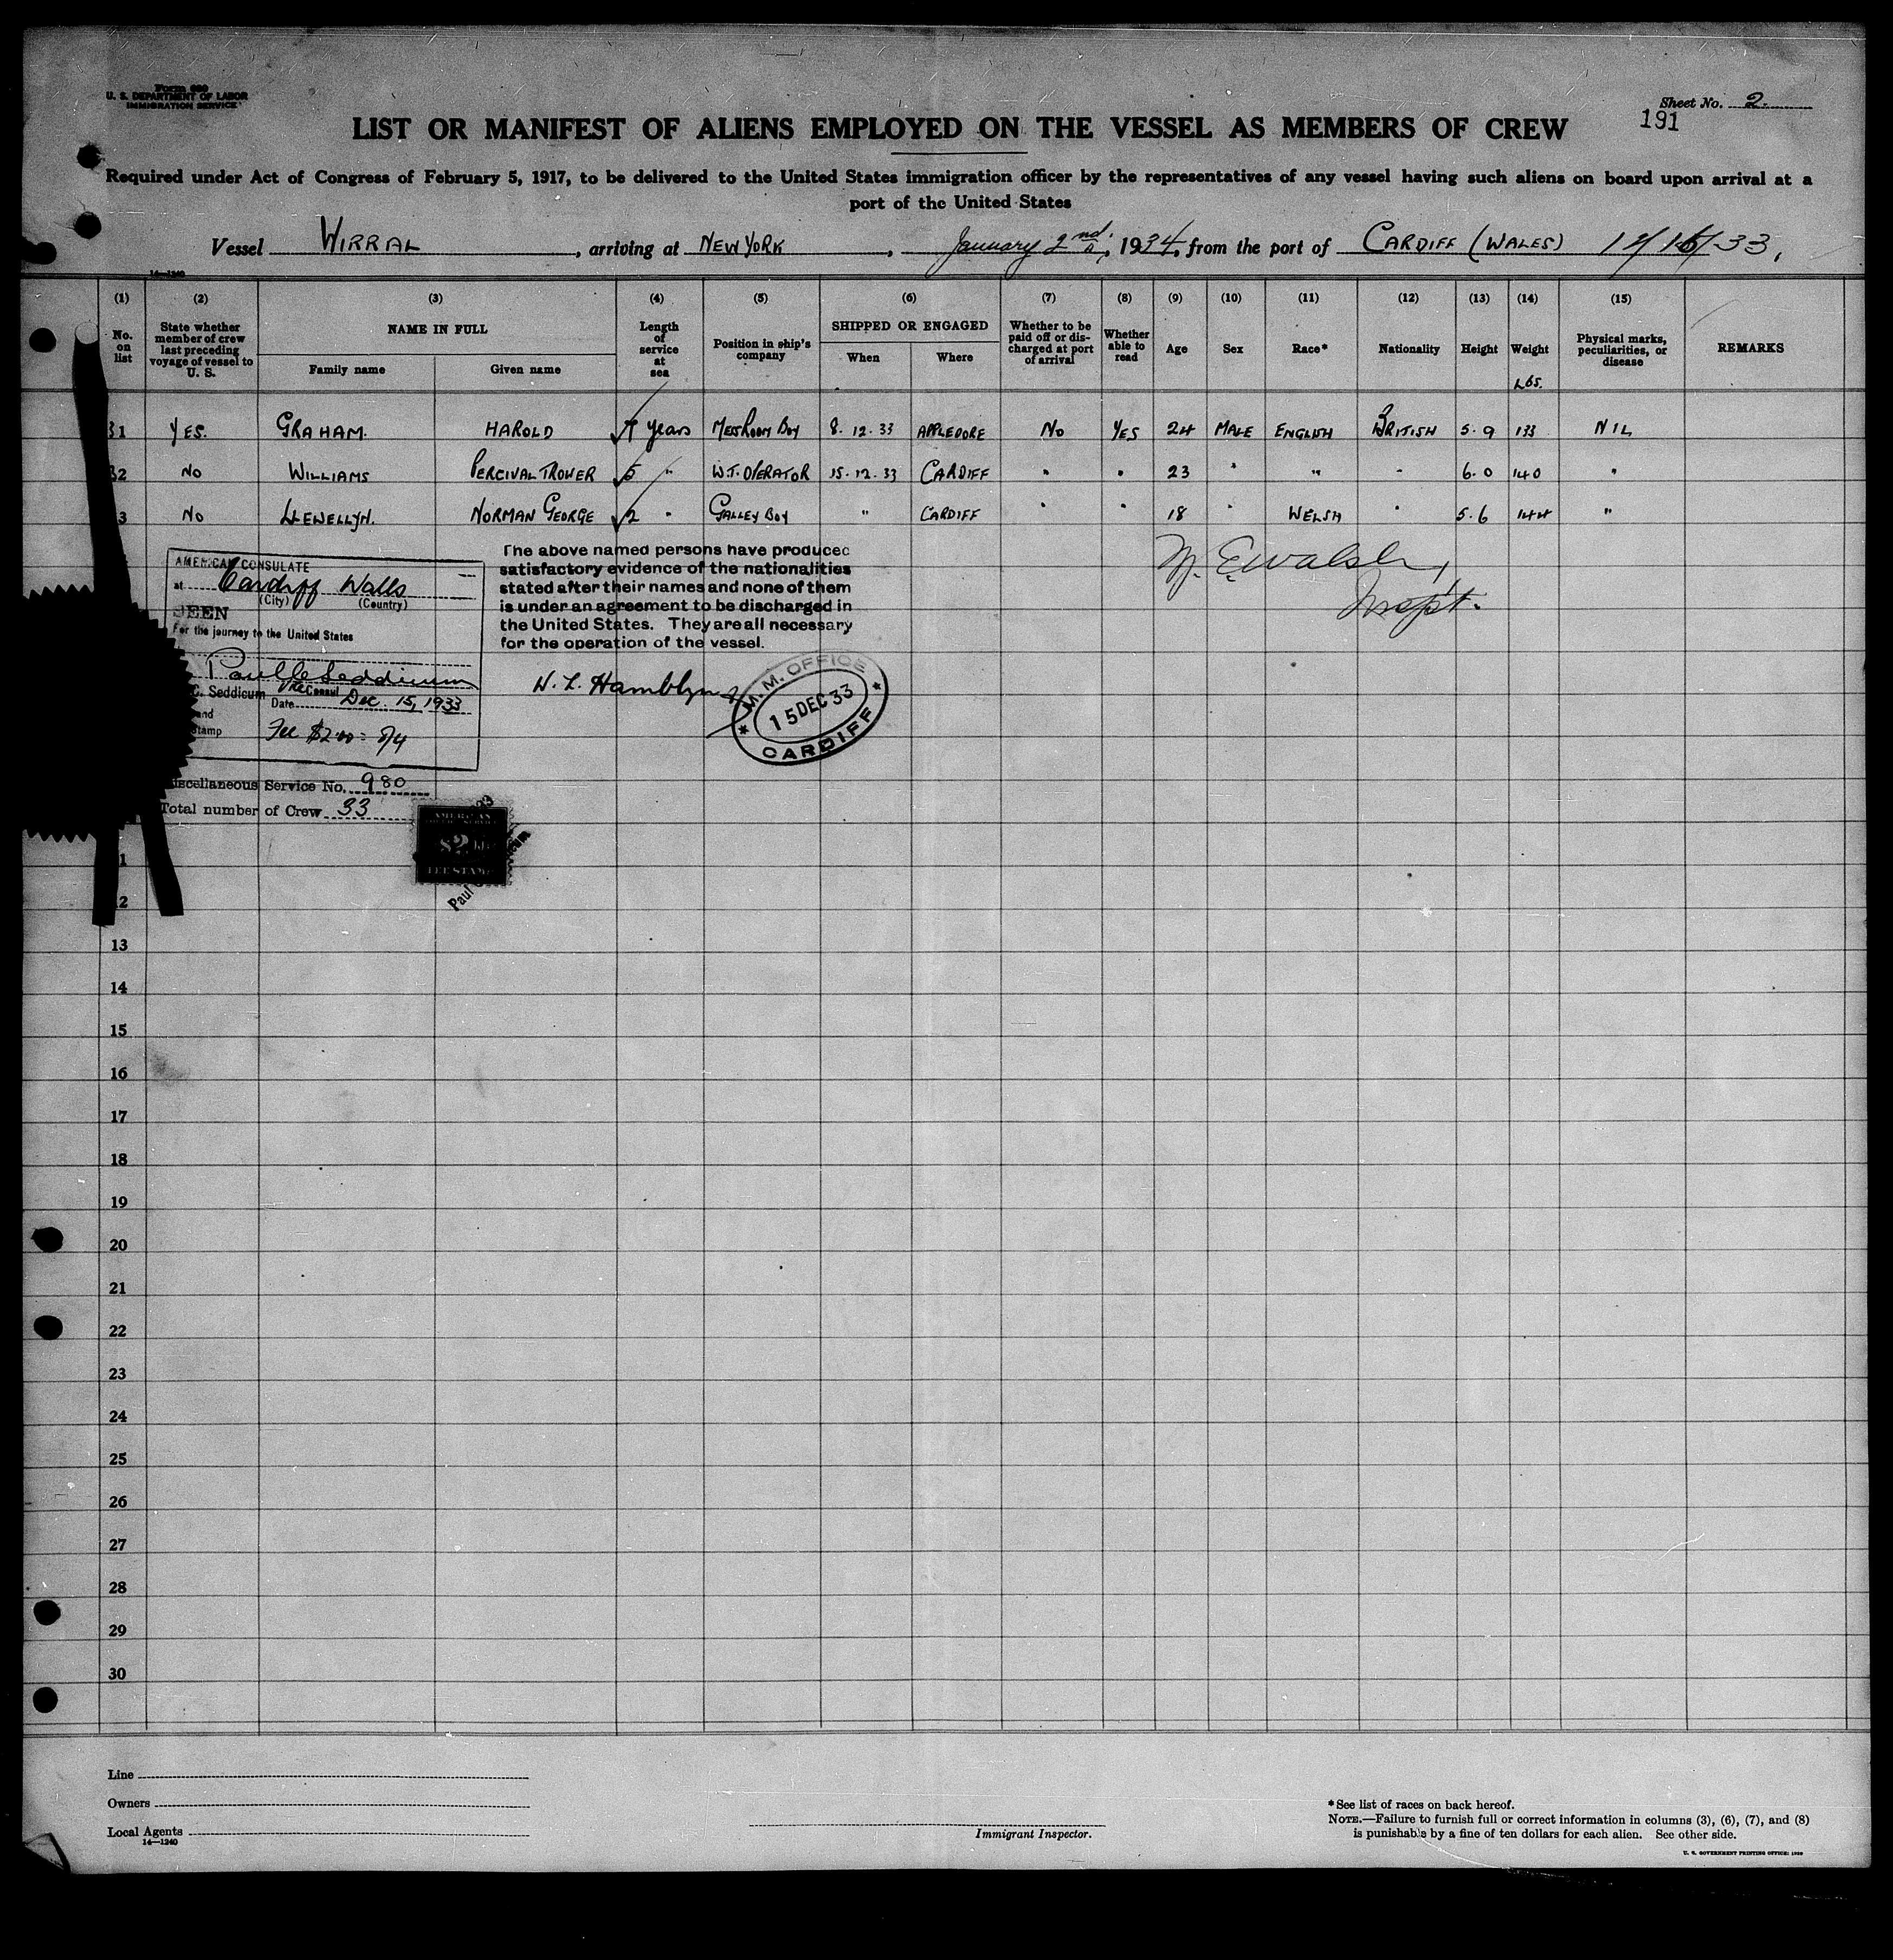 Form 680
U. S. DEPARTMENT OF LABOR
IMMIGRATION SERVICE
Sheet No. 2
191
LIST OR MANIFEST OF ALIENS EMPLOYED ON THE VESSEL AS MEMBERS OF CREW
Required under Act of Congress of February 5, 1917, to be delivered to the United States immigration officer by the representatives of any vessel having such aliens on board upon arrival at a
port of the United States
Vessel WIRRAL, arriving at NEW YORK, January 2nd, 1934, from the port of CARDIFF (WALES)
14—1240
(1) (2) (3) (4) (5) (6) (7) (8) (9) (10) (11) (12) (13) (14) (15)
No. on list State whether member of crew last preceding voyage of vessel to U. S. NAME IN FULL Family name Given name Length of service at sea Position in ship's company SHIPPED OR ENGAGED When Where Whether to be paid off or discharged at port of arrival Whether able to read Age Sex Race* Nationality Height Weight Lbs. Physical marks, peculiarities, or disease REMARKS
31 YES. GRAHAM. HAROLD years MESSROOM BOY 8.12.33 APPLEDORE NO YES 24 MALE ENGLISH BRITISH 5.9 133 NIL
32 NO WILLIAMS PERCIVAL TROWER 5 " W.T. OPERATOR 15.12.33 CARDIFF " " 23 " " " 6.0 140 "
3 NO LLEWELLYN. NORMAN GEORGE 2 " GALLEY BOY " CARDIFF " " 18 " WELSH " 5.6 144 "
The above named persons have produced
satisfactory evidence of the nationalities
stated after their names and none of them
is under an agreement to be discharged in
the United States. They are all necessary
for the operation of the vessel.
W. L. Hamblyn
M. M. OFFICE
15 DEC 33
CARDIFF
M. E. Walsh,
Insp't.
AMERICAN CONSULATE
at Cardiff Wales
(City) (Country)
SEEN
For the journey to the United States
Paul C Seddicum
C. Seddicum Vice Consul
Date Dec. 15, 1933
and
stamp
Fee $2.00 = 8/4
Miscellaneous Service No. 980
Total number of Crew 33
AMERICAN
$2
FEE STAMP
Paul
1
12
13
14
15
16
17
18
19
20
21
22
23
24
25
26
27
28
29
30
Line
Owners
Local Agents
14—1240
Immigrant Inspector.
*See list of races on back hereof.
NOTE.—Failure to furnish full or correct information in columns (3), (6), (7), and (8)
is punishable by a fine of ten dollars for each alien. See other side.
U. S. GOVERNMENT PRINTING OFFICE: 1929